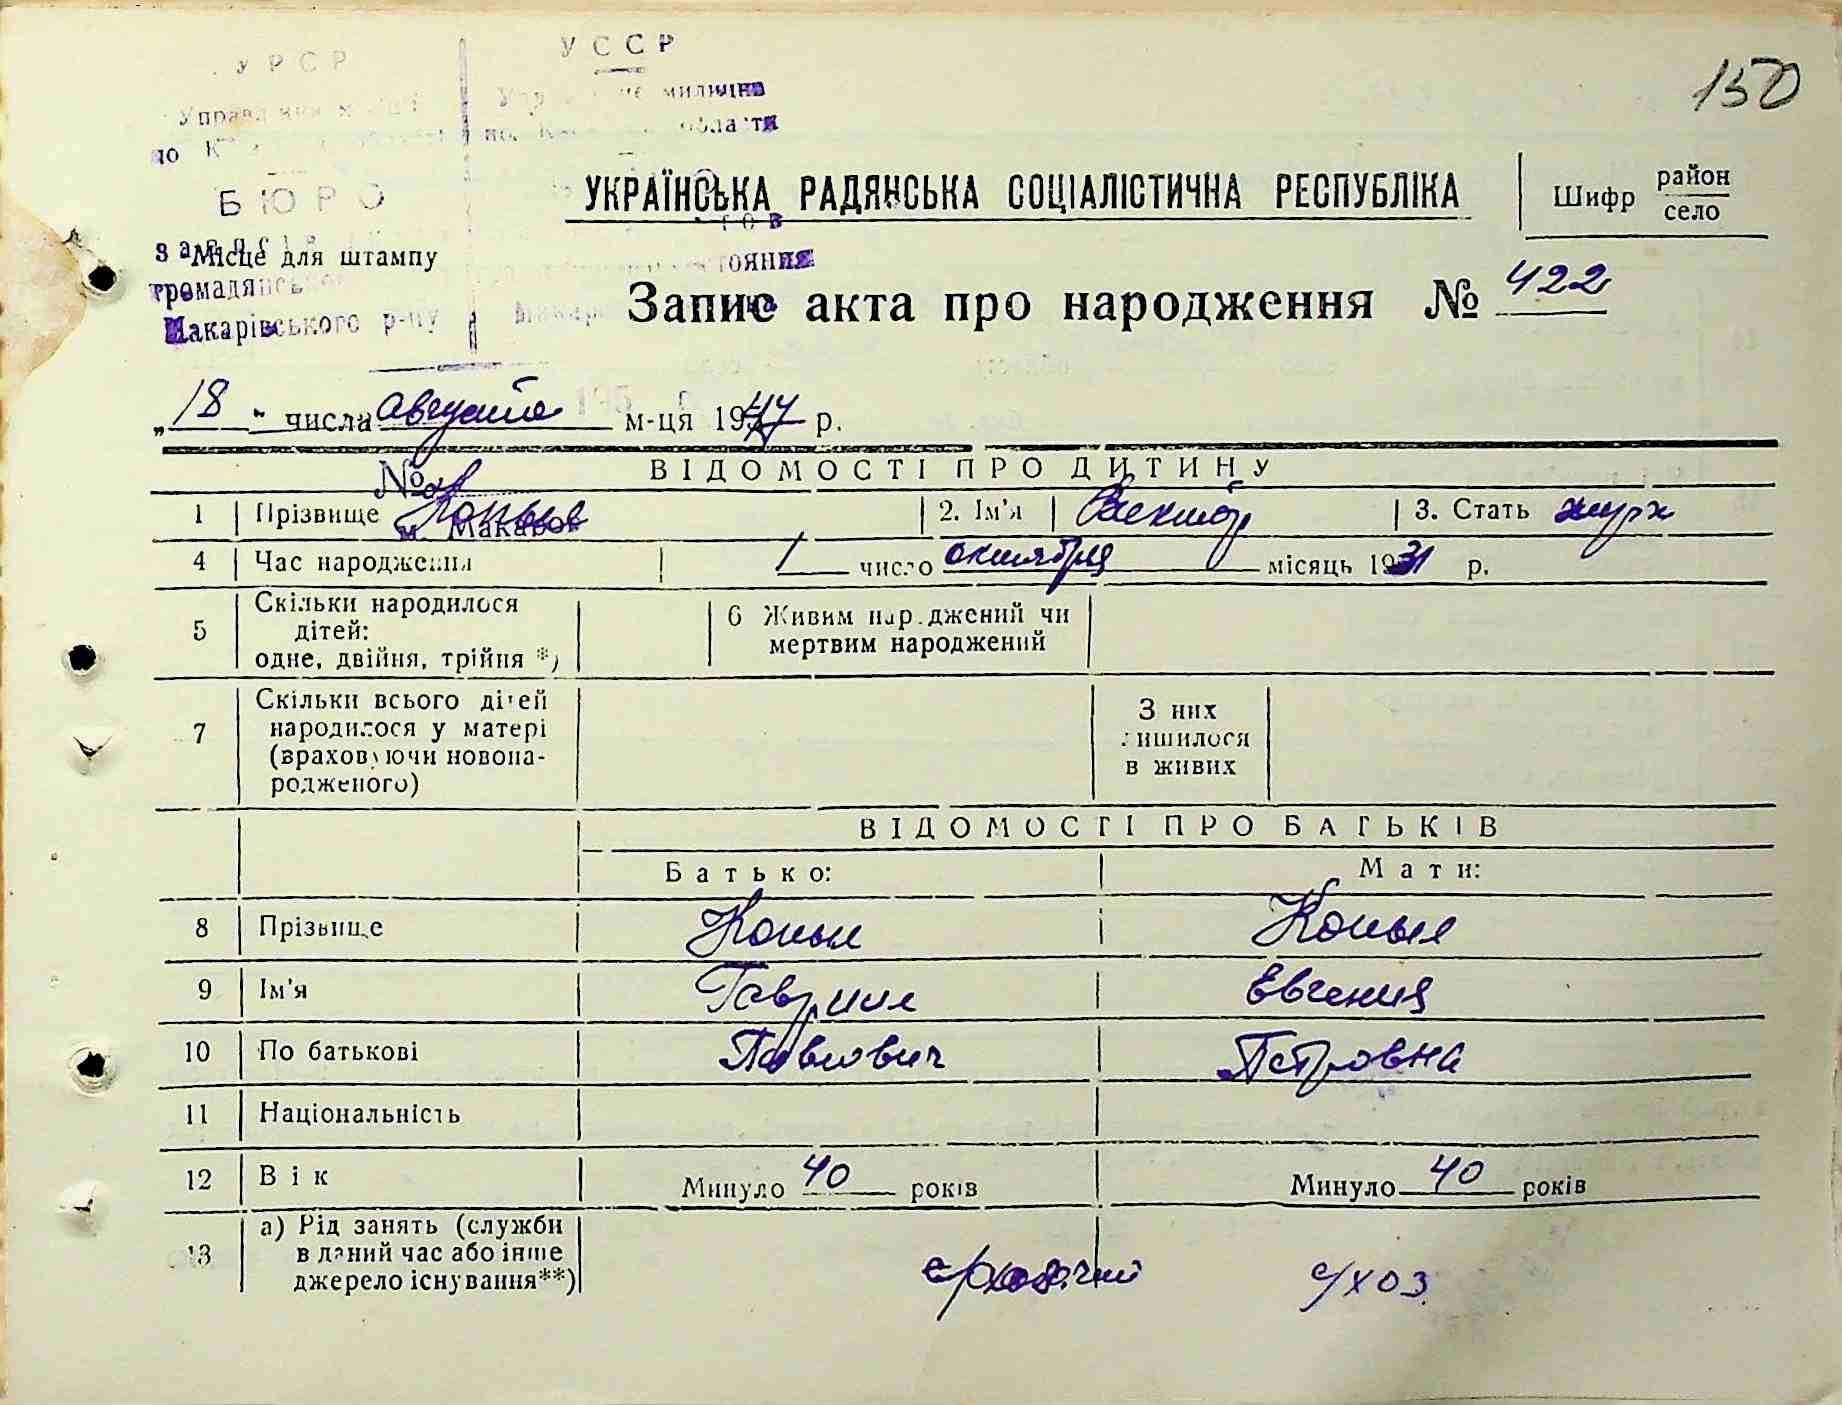 150
УРСР
УССР
Управ
милиции
по К
области
БЮРО
УКРАЇНСЬКА РАДЯНСЬКА СОЦІАЛІСТИЧНА РЕСПУБЛІКА
Шифр район
село
Місце для штампу
громадянсько
Макарівського р-ну
тояния
Запис акта про народження № 422
„18" числа августа м-ця 1947 р.
ВІДОМОСТІ ПРО ДИТИНУ
№
1 Прізвище Копыл 2. Ім'я Виктор 3. Стать муж
м. Макаров
4 Час народження 1 число октября місяць 1931 р.
5 Скільки народилося
дітей:
одне, двійня, трійня *)
6 Живим народжений чи
мертвим народжений
7 Скільки всього дітей
народилося у матері
(враховуючи новона-
родженого)
З них
лишилося
в живих
ВІДОМОСТІ ПРО БАТЬКІВ
Батько: Мати:
8 Прізвище Копыл Копыл
9 Ім'я Гавриил Евгения
10 По батькові Павлович Петровна
11 Національність
12 Вік Минуло 40 років Минуло 40 років
13 а) Рід занять (служби
в даний час або інше
джерело існування**)
с/хоз.